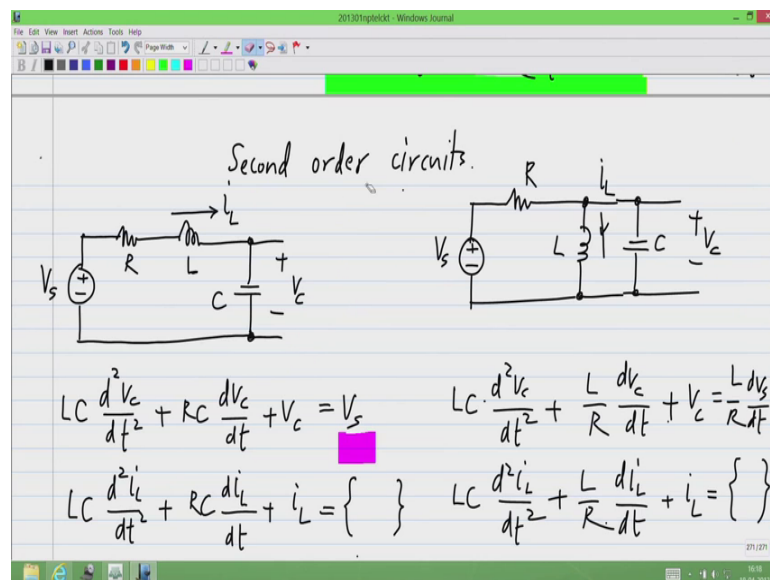 201301nptelckt - Windows Journal
File Edit View Insert Actions Tools Help
Page Width
B I
Second order circuits.
i_L
R L
V_s + - C + V_c -
R i_L
V_s + - L C + V_c -
LC d²V_c/dt² + RC dV_c/dt + V_c = V_s
LC d²i_L/dt² + RC di_L/dt + i_L = { }
LC · d²V_c/dt² + L/R dV_c/dt + V_c = L/R dV_s/dt
LC d²i_L/dt² + L/R di_L/dt + i_L = { }
271/271
16:18